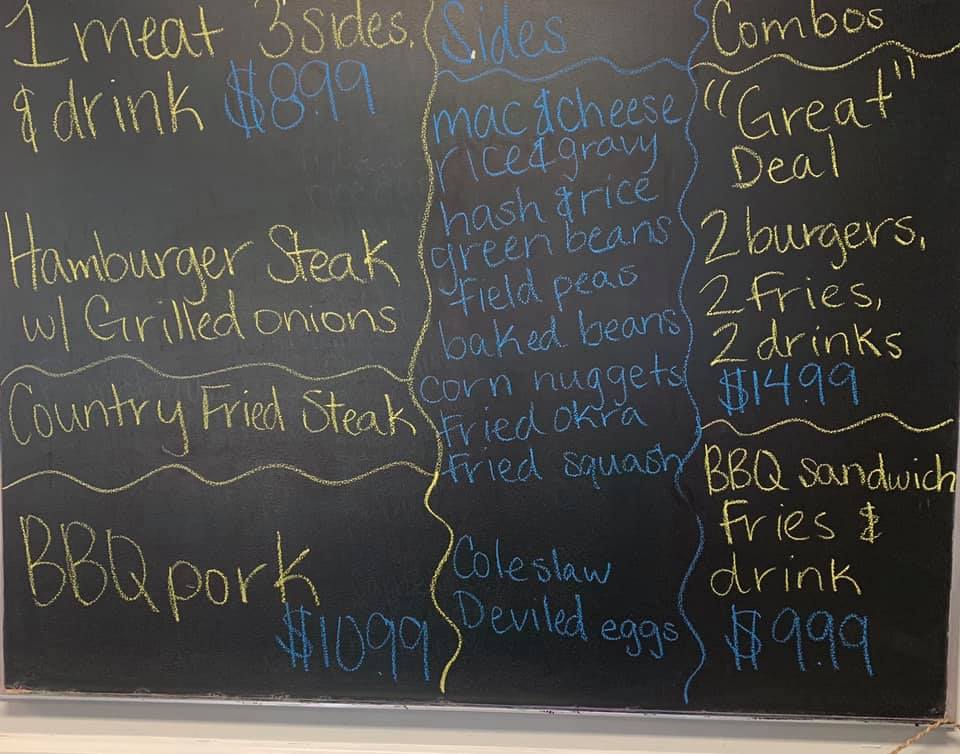 1 meat 3 sides,
& drink $8.99
Hamburger Steak
w/ Grilled onions
Country Fried Steak
BBQ pork
$10.99
Sides
mac & cheese
rice & gravy
hash & rice
green beans
field peas
baked beans
corn nuggets
Fried okra
Fried squash
Coleslaw
Deviled eggs
Combos
"Great"
Deal
2 burgers,
2 Fries,
2 drinks
$14.99
BBQ sandwich
Fries &
drink
$9.99